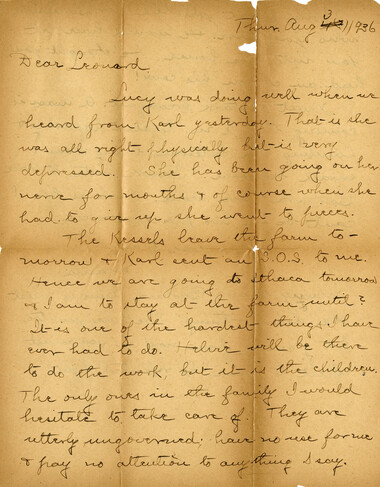 Thur. Aug 3 1936
Dear Leonard
Lucy was doing well when we
heard from Karl yesterday. That is she
was all right physically but is very
depressed. She has been going on her
nerve for months & of course when she
had to give up she went to pieces.
The Kessels leave the farm to-
morrow & Karl sent an S.O.S. to me.
Hence we are going to Ithaca tomorrow
& I am to stay at the farm until?
It is one of the hardest things I have
ever had to do. will be there
to do the work, but it is the children.
The only ones in the family I would
hesitate to take care of. They are
utterly ungoverned; have no use for me
& pay no attention to anything I say.